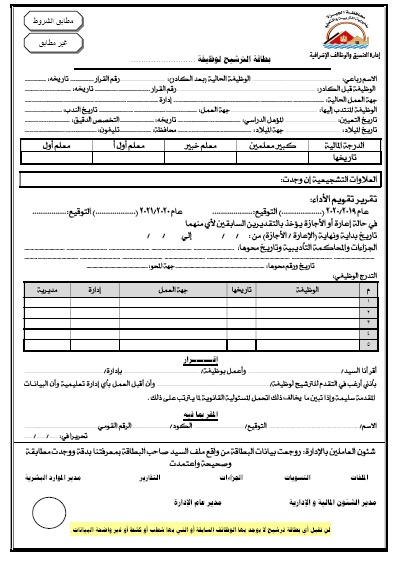 مطابق الشروط
غير مطابق
إدارة التنسيق والوظائف الإشرافية
بطاقة الترشيح لوظيفة ........................
الاسم رباعي: .................... الوظيفة الحالية (بعد الكادر): .................... رقم القرار .............. تاريخه: ..............
الوظيفة قبل الكادر: .................... رقم القرار .............. تاريخه: ..............
جهة العمل الحالية: .................... إدارة ....................
الوظيفة المنتدب إليها: .................... جهة العمل: .................... تاريخ الندب: ..............
تاريخ التعيين: .............. المؤهل الدراسي: .............. تاريخه: .............. التخصص الدقيق: ..............
تاريخ الميلاد: .............. جهة الميلاد: .............. محافظة .............. تليفون: ..............
الدرجة المالية كبير معلمين معلم خبير معلم أول أ معلم أول
تاريخها
العلاوات التشجيعية إن وجدت:
تقرير تقويم الأداء:
عام ٢٠٢٠/٢٠١٩ (....................) التوقيع: .................... عام ٢٠٢١/٢٠٢٠ (....................) التوقيع: ....................
في حالة إعارة أو الأجازة يؤخذ بالتقديرين السابقين لأي منهما
تاريخ بداية ونهاية (الإعارة / الأجازة) من: / / إلي / /
الجزاءات والمحاكمة التأديبية وتاريخ محوها: ....................
تاريخ ورقم محوها: .................... جهة المحو: ....................
التدرج الوظيفي:
م الوظيفة تاريخها جهة العمل إدارة مديرية
١
٢
٣
٤
٥
إقـــــرار
أقر أنا السيد/ .................... وأعمل بوظيفة/ .................... بإدارة/ ....................
بأنني أرغب في التقدم للترشيح لوظيفة/ .................... وأن أقبل العمل بأي إدارة تعليمية وأن البيانات
المقدمة سليمة وإذا تبين ما يخالف ذلك اتحمل المسئولية القانونية لما يترتب على ذلك.
المقر بما فيه
الاسم/ التوقيع/ الكود/ الرقم القومي
تحريرا في: .... / .... / ....
شئون العاملين بالإدارة: روجعت بيانات البطاقة من واقع ملف السيد صاحب البطاقة بمعرفتنا بدقة ووجدت مطابقة
وصحيحة واعتمدت
الملفات التسويات الجزاءات التقارير مدير الموارد البشرية
مدير الشئون المالية و الإدارية مدير عام الإدارة
لن تقبل أى بطاقة ترشيح لا يوجد بها الوظائف السابقة أو التي بها شطب أو كشط أو غير واضحة البيانات